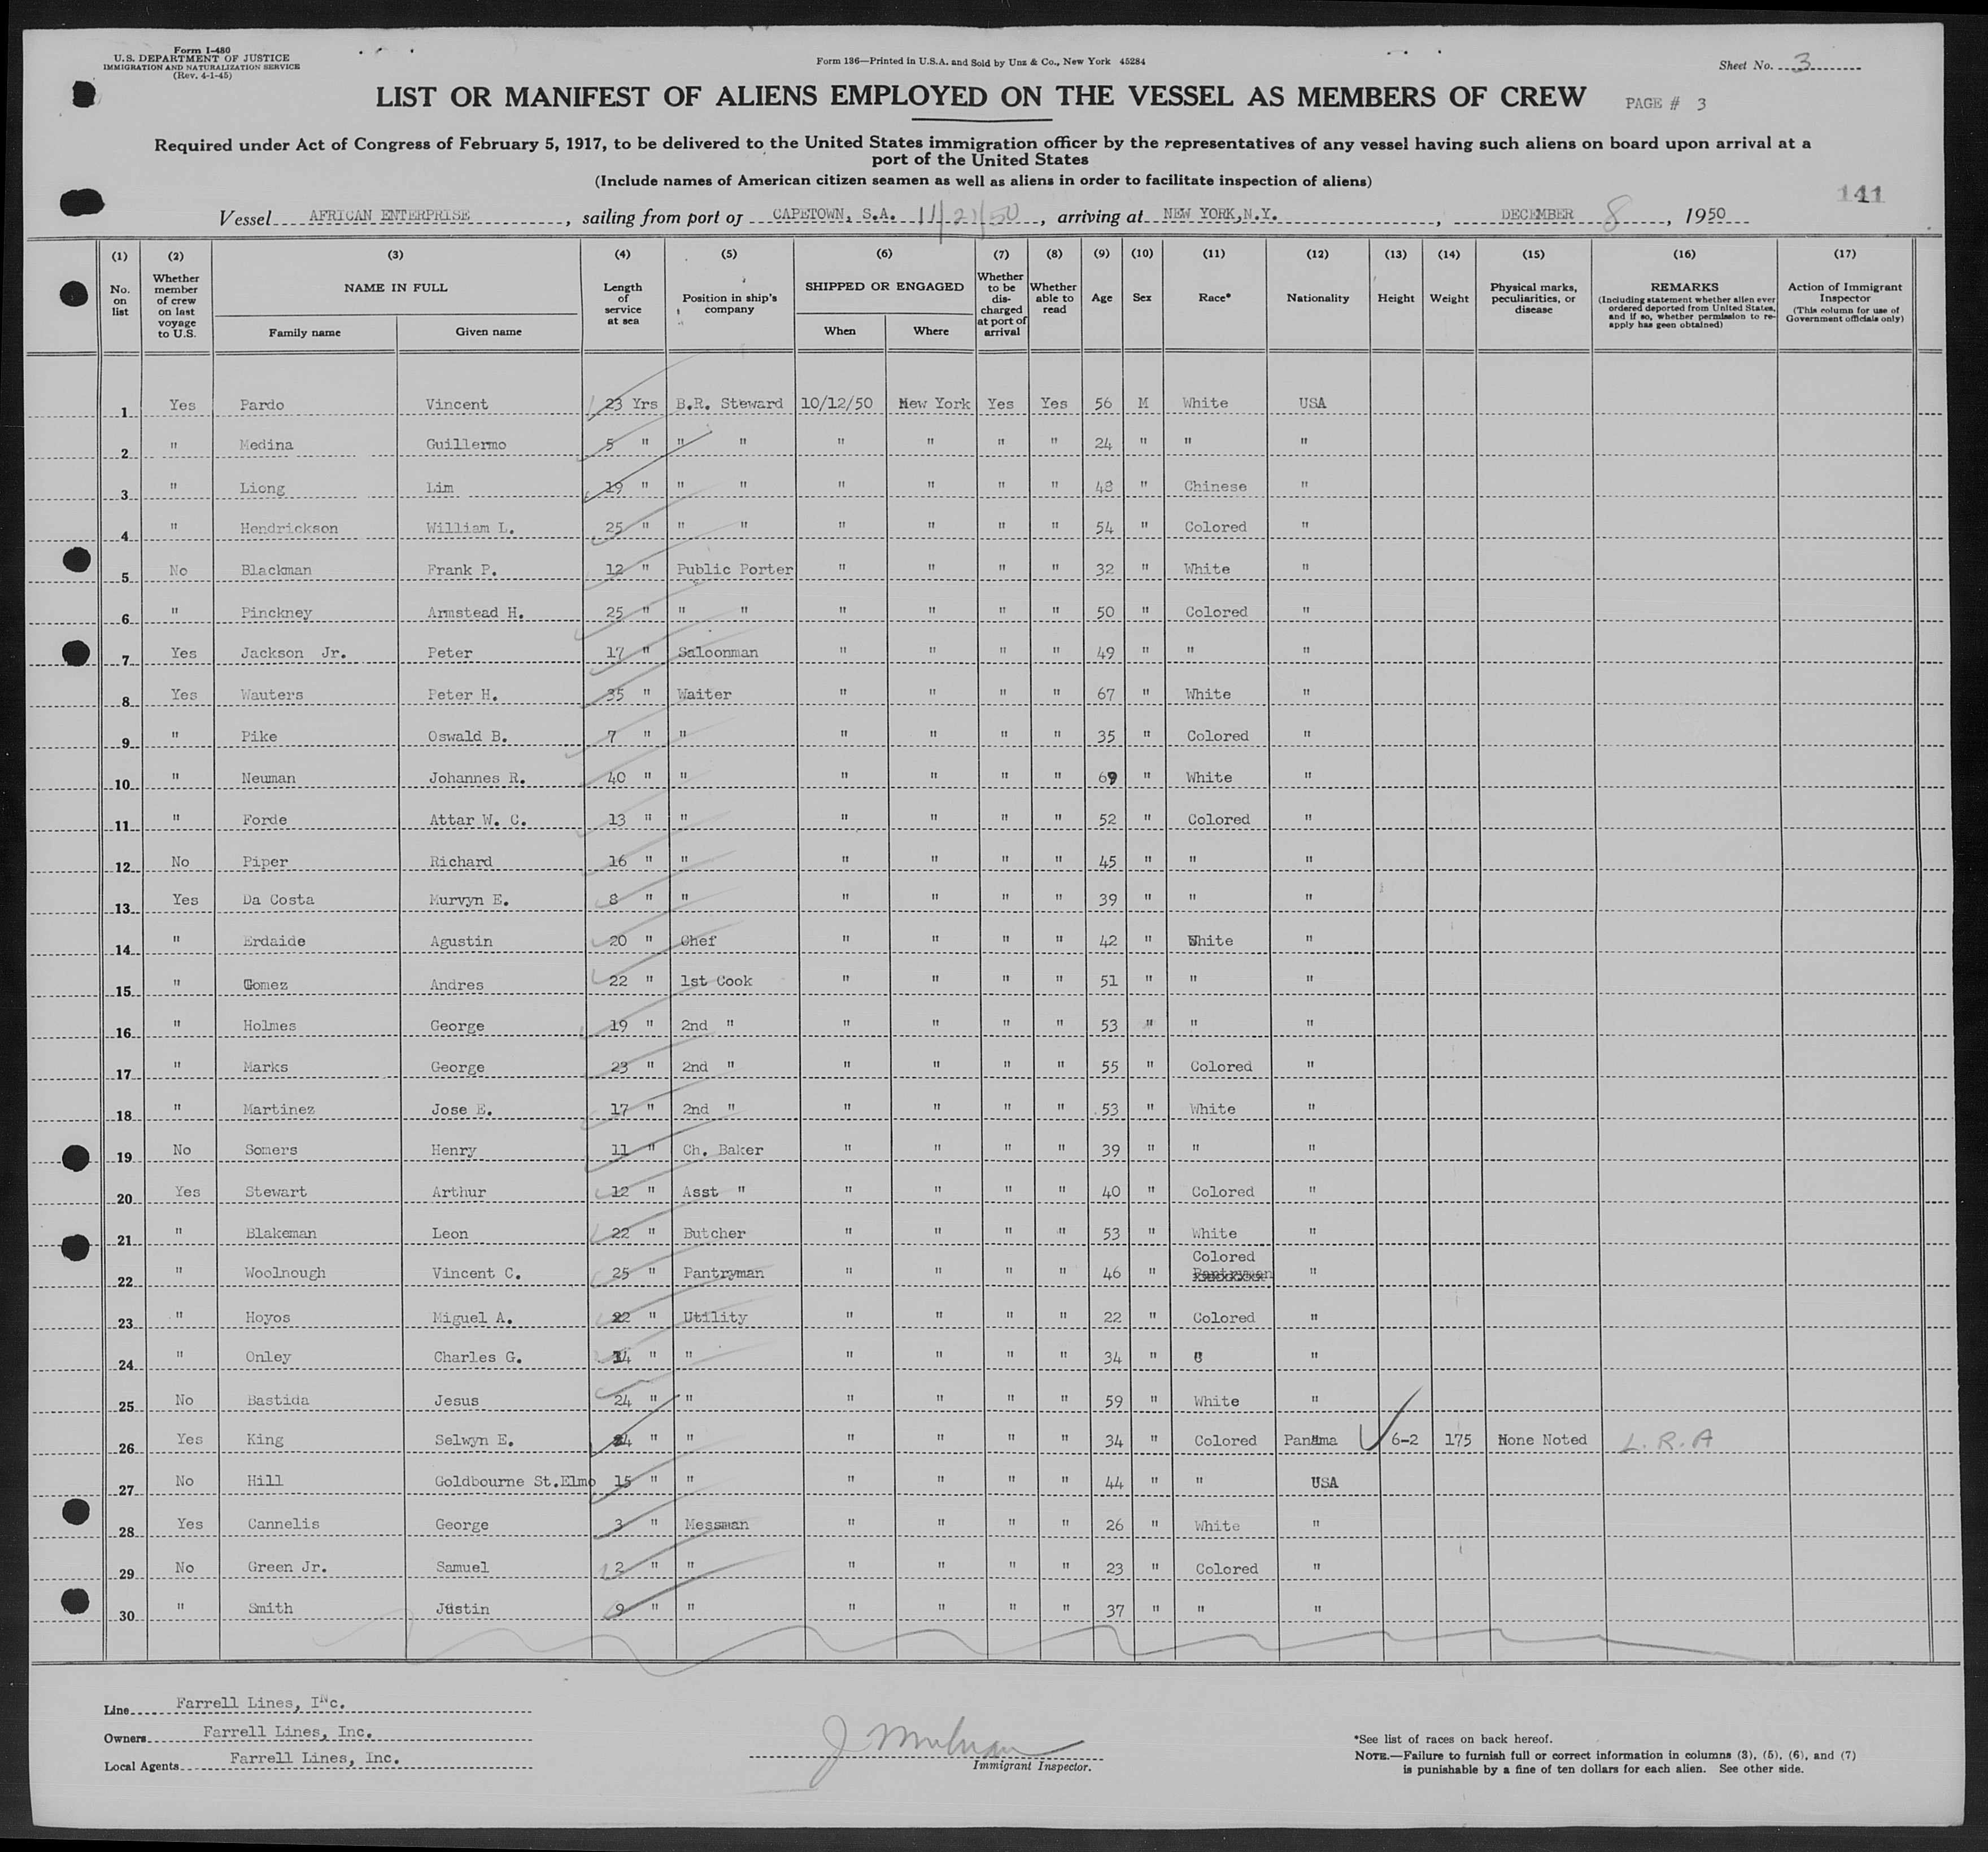 Form I-480
U.S. DEPARTMENT OF JUSTICE
IMMIGRATION AND NATURALIZATION SERVICE
(Rev. 4-1-45)
Form 136—Printed in U.S.A. and Sold by Unz & Co., New York 45284
Sheet No. 3
LIST OR MANIFEST OF ALIENS EMPLOYED ON THE VESSEL AS MEMBERS OF CREW PAGE # 3
Required under Act of Congress of February 5, 1917, to be delivered to the United States immigration officer by the representatives of any vessel having such aliens on board upon arrival at a
port of the United States
(Include names of American citizen seamen as well as aliens in order to facilitate inspection of aliens)
141
Vessel AFRICAN ENTERPRISE, sailing from port of CAPETOWN, S.A. 11/21/50, arriving at NEW YORK,N.Y., DECEMBER 8, 1950
(1) No. on list
(2) Whether member of crew on last voyage to U.S.
(3) NAME IN FULL Family name Given name
(4) Length of service at sea
(5) Position in ship's company
(6) SHIPPED OR ENGAGED When Where
(7) Whether to be discharged at port of arrival
(8) Whether able to read
(9) Age
(10) Sex
(11) Race*
(12) Nationality
(13) Height
(14) Weight
(15) Physical marks, peculiarities, or disease
(16) REMARKS (Including statement whether alien ever ordered deported from United States, and if so, whether permission to re-apply has geen obtained)
(17) Action of Immigrant Inspector (This column for use of Government officials only)
1 Yes Pardo Vincent 23 Yrs B.R. Steward 10/12/50 New York Yes Yes 56 M White USA
2 " Medina Guillermo 5 " " " " " " " 24 " " "
3 " Liong Lim 19 " " " " " " " 48 " Chinese "
4 " Hendrickson William L. 25 " " " " " " " 54 " Colored "
5 No Blackman Frank P. 12 " Public Porter " " " " 32 " White "
6 " Pinckney Armstead H. 25 " " " " " " " 50 " Colored "
7 Yes Jackson Jr. Peter 17 " Saloonman " " " " 49 " " "
8 Yes Wauters Peter H. 35 " Waiter " " " " 67 " White "
9 " Pike Oswald B. 7 " " " " " " 35 " Colored "
10 " Neuman Johannes R. 40 " " " " " " 69 " White "
11 " Forde Attar W. C. 13 " " " " " " 52 " Colored "
12 No Piper Richard 16 " " " " " " 45 " " "
13 Yes Da Costa Murvyn E. 8 " " " " " " 39 " " "
14 " Erdaide Agustin 20 " Chef " " " " 42 " White "
15 " Gomez Andres 22 " 1st Cook " " " " 51 " " "
16 " Holmes George 19 " 2nd " " " " " 53 " " "
17 " Marks George 23 " 2nd " " " " " 55 " Colored "
18 " Martinez Jose E. 17 " 2nd " " " " " 53 " White "
19 No Somers Henry 11 " Ch. Baker " " " " 39 " " "
20 Yes Stewart Arthur 12 " Asst " " " " " 40 " Colored "
21 " Blakeman Leon 22 " Butcher " " " " 53 " White "
22 " Woolnough Vincent C. 25 " Pantryman " " " " 46 " Colored "
23 " Hoyos Miguel A. 22 " Utility " " " " 22 " Colored "
24 " Onley Charles G. 14 " " " " " " 34 " " "
25 No Bastida Jesus 24 " " " " " " 59 " White "
26 Yes King Selwyn E. " " " " " " 34 " Colored Panama 6-2 175 None Noted L.R.A
27 No Hill Goldbourne St.Elmo 15 " " " " " " 44 " " USA
28 Yes Cannelis George 3 " Messman " " " " 26 " White "
29 No Green Jr. Samuel 2 " " " " " " 23 " Colored "
30 " Smith Justin 9 " " " " " " 37 " " "
Line Farrell Lines, Inc.
Owners Farrell Lines, Inc.
Local Agents Farrell Lines, Inc.
Immigrant Inspector.
*See list of races on back hereof.
NOTE.—Failure to furnish full or correct information in columns (3), (5), (6), and (7)
is punishable by a fine of ten dollars for each alien. See other side.